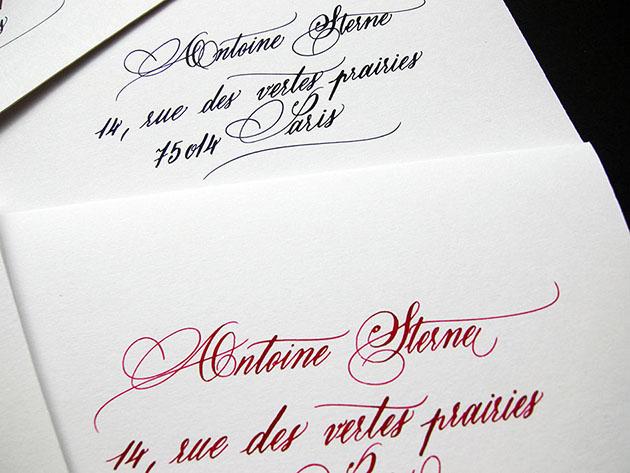 Antoine Sterne
14, rue des vertes prairies
75014 Paris
Antoine Sterne
14, rue des vertes prairies